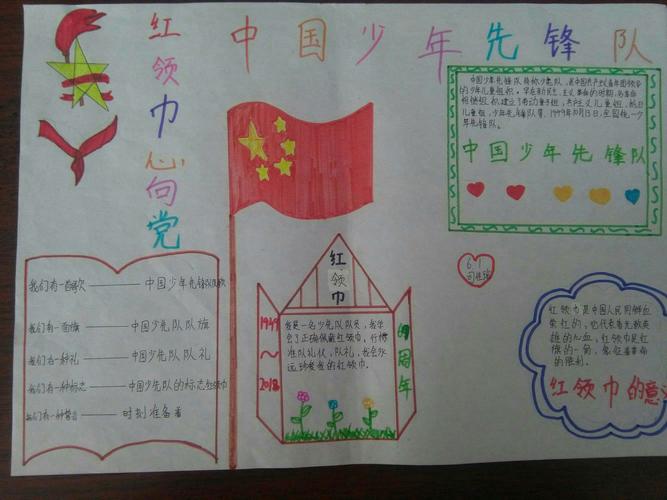 中国少年先锋队
红领巾心向党
中国少年先锋队简称少先队,是中国共产主义青年团领导
的少年儿童组织。早在新民主主义革命的时期,
组织建立了劳动童子团,共产主义儿童团,抗日
儿童团,少年先锋队等,1949年10月13日,全国统一少
年先锋队。
中国少年先锋队
我们有一首歌——中国少年先锋队队歌
我们有一面旗——中国少先队队旗
我们有一种礼——中国少先队队礼
我们有一种标志——中国少先队的标志红领巾
我们有一种誓言——时刻准备着
红领巾
1949~2018
我是一名少先队队员,我学
会了正确佩戴红领巾,行标
准队礼仪,队礼,我会永
远珍爱我的红领巾。
周年
6.1
红领巾是中国人民用鲜血
染红的,它代表着先烈英
雄的心血,红领巾是红
旗的一角,象征着革命
的胜利。
红领巾的意义